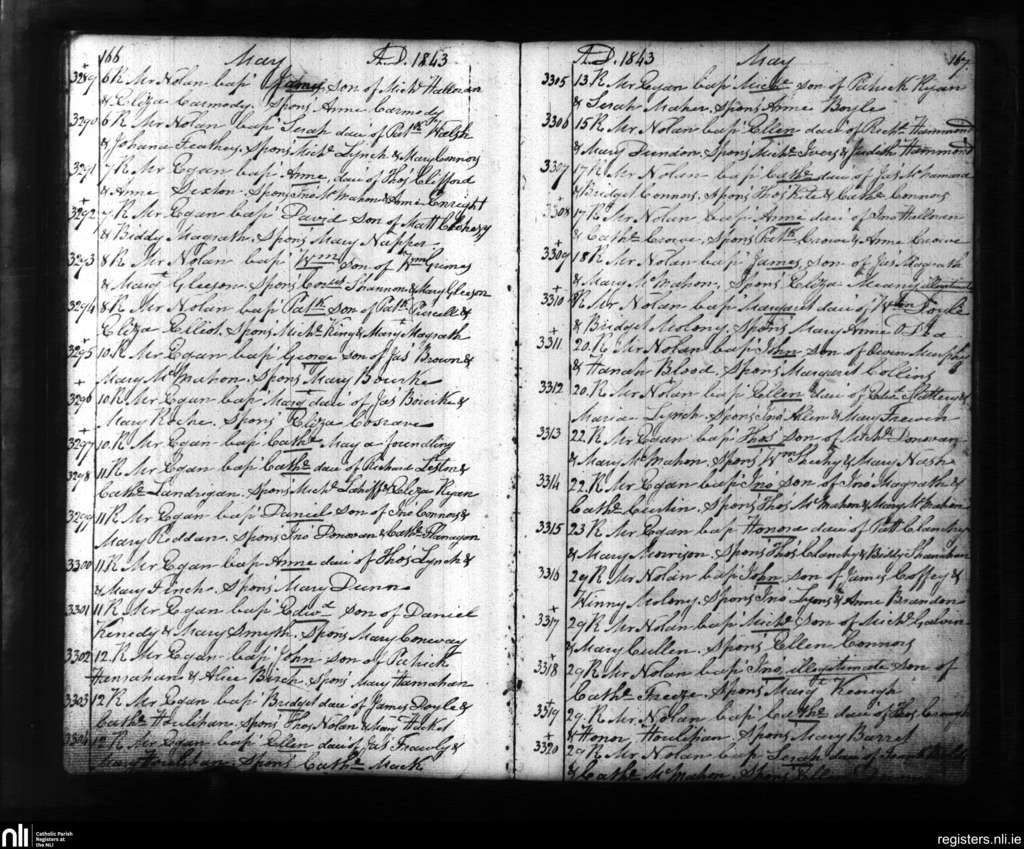 166 May A.D. 1843
3289 6 R Mr Nolan bap James, son of Mich Halloran
& Eliza Carmody. Spons Anne Carmody
3290 6 R Mr Nolan bap Serah daur of Patk Walsh
& Johana Feathey. Spons Michl Lynch & Mary Connors
3291 7 R Mr Egan bap Anne, daur of Thos Clifford
& Anne Sexton. Spons Mahon & Anne Enright
3292 7 R Mr Egan bap David son of Matt
& Biddy Magrath. Spons Mary Napper
3293 8 R Mr Nolan bap Wm son of Wm Grimes
& Mary Gleeson. Spons Shannon & Mary Gleeson
3294 8 R Mr Nolan bap Patk son of Patk Purcell &
Eliza Elliot. Spons Michl King & Mary Magrath
3295 10 R Mr Egan bap George son of Jas Brown &
Mary McMahon. Spons Mary Bourke
3296 10 R Mr Egan bap Mary daur of Jas Bourke &
Mary Roche. Spons Eliza Cosgrave
3297 10 R Mr Egan bap Cathe May a foundling
3298 11 R Mr Egan bap Cathe daur of Richard Leston &
Cathe Landrigan. Spons Michl & Eliza Ryan
3299 11 R Mr Egan bap Daniel son of Jno Connors &
Mary Reddan. Spons Jno Donovan & Cathe Flanagan
3300 11 R Mr Egan bap Anne daur of Thos Lynch &
& Mary Finch. Spons Mary Dunn
3301 11 R Mr Egan bap Edwd son of Daniel
Kenedy & Mary Smyth. Spons Mary Conway
3302 12 R Mr Egan bap John son of Patrick
Hanrahan & Alice Birch Spons Mary Hanrahan
3303 12 R Mr Egan bap Bridget daur of James Doyle &
Cathe Houlihan. Spons Thos Nolan & Mary
3304 12 R Mr Egan bap Ellen daur of Jas Frawly &
Mary Houlihan. Spons Cathe Mack
A.D. 1843 May 167
3305 13 R Mr Egan bap Michl son of Patrick Ryan
& Serah Maher. Spons Anne Boyle
3306 15 R Mr Nolan bap Ellen daur of Robt Hammond
& Mary Dundon. Spons Michl Ivers & Judith Hammond
3307 17 R Mr Nolan bap Cathe daur of Jas McNamara
& Bridget Connors. Spons Thos Kite & Cathe Connors
3308 17 R Mr Nolan bap Anne daur of Jno Halloran
& Cathe Crowe. Spons Patk Crowe & Anne Crowe
3309 18 R Mr Nolan bap James son of Jas Magrath
& Mary McMahon. Spons Eliza Meany illegitimate
3310 R Mr Nolan bap Margaret daur of Wm Forde
& Bridget Molony. Spons Mary Anne
3311 20. R Mr Nolan bap John son of Owen Murphy
& Hanah Blood. Spons Margaret Collins
3312 20. R Mr Nolan bap Ellen daur of Slattery &
Maria Lynch. Spons Jno & Mary
3313 22. R Mr Egan bap Thos son of Michl Donovan
& Mary McMahon Spons Wm Sheehy & Mary Nash
3314 22. R Mr Egan bap Jno son of Jno Magrath &
Cathe Curtin. Spons Thos McMahon & Mary McMahon
3315 23 R Mr Egan bap Honora daur of Patt Clanchy
& Mary Morrison. Spons Thos Clanchy & Biddy Shanahan
3316 29 R Mr Nolan bap John son of James Coffey &
Winny Molony. Spons Jno Lyons & Anne Brandon
3317 29 R Mr Nolan bap Michl son of Michl Galvin
& Mary Cullen. Spons Ellen Connors
3318 29 R Mr Nolan bap Jno illegitimate son of
Cathe Freeze. Spons Mary Keough
3319 29. R Mr Nolan bap Cathe daur of Thos
& Honor Houlihan. Spons Mary Barret
3320 29 R Mr Nolan bap Serah daur of Frank
& Cathe McMahon. Spons
nli Catholic Parish
Registers at
the NLI
registers.nli.ie